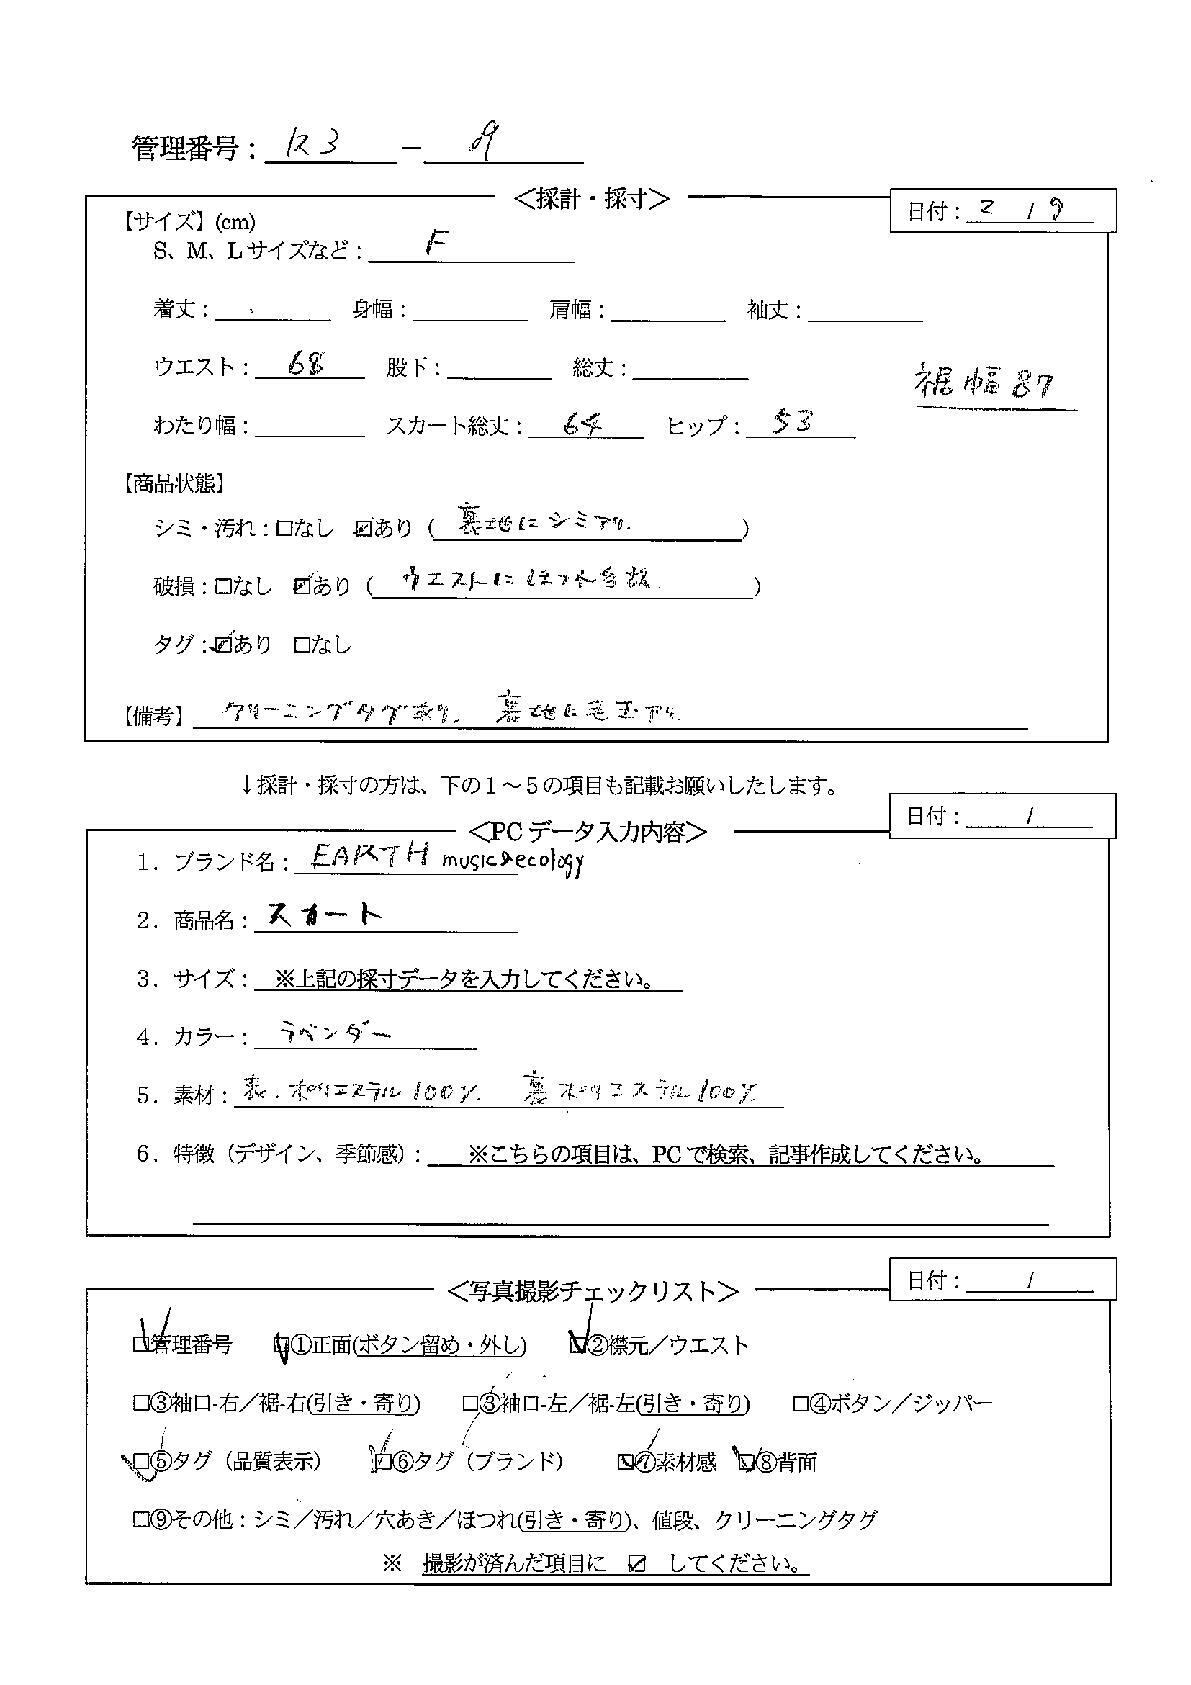 管理番号：R3 － 9
＜採計・採寸＞
日付：2 / 9
【サイズ】(cm)
S、M、Lサイズなど：F
着丈： 身幅： 肩幅： 袖丈：
ウエスト：68 股下： 総丈：
裾幅 87
わたり幅： スカート総丈：64 ヒップ：53
【商品状態】
シミ・汚れ：□なし ☑あり（裏地にシミアリ.）
破損：□なし ☑あり（ウエストにほつれ）
タグ：☑あり □なし
【備考】クリーニングタグあり. 裏地に毛玉アリ.
↓採計・採寸の方は、下の１～５の項目も記載お願いしたします。
＜PCデータ入力内容＞
日付： /
1．ブランド名：EARTH music&ecology
2．商品名：スカート
3．サイズ： ※上記の採寸データを入力してください。
4．カラー：ラベンダー
5．素材：表．ポリエステル100% 裏 ポリエステル100%
6．特徴（デザイン、季節感）： ※こちらの項目は、PCで検索、記事作成してください。
＜写真撮影チェックリスト＞
日付： /
☑管理番号 ☑①正面(ボタン留め・外し) ☑②襟元／ウエスト
□③袖口-右／裾-右(引き・寄り) □③袖口-左／裾-左(引き・寄り) □④ボタン／ジッパー
☑⑤タグ（品質表示） ☑⑥タグ（ブランド） ☑⑦素材感 ☑⑧背面
□⑨その他：シミ／汚れ／穴あき／ほつれ(引き・寄り)、値段、クリーニングタグ
※ 撮影が済んだ項目に ☑ してください。